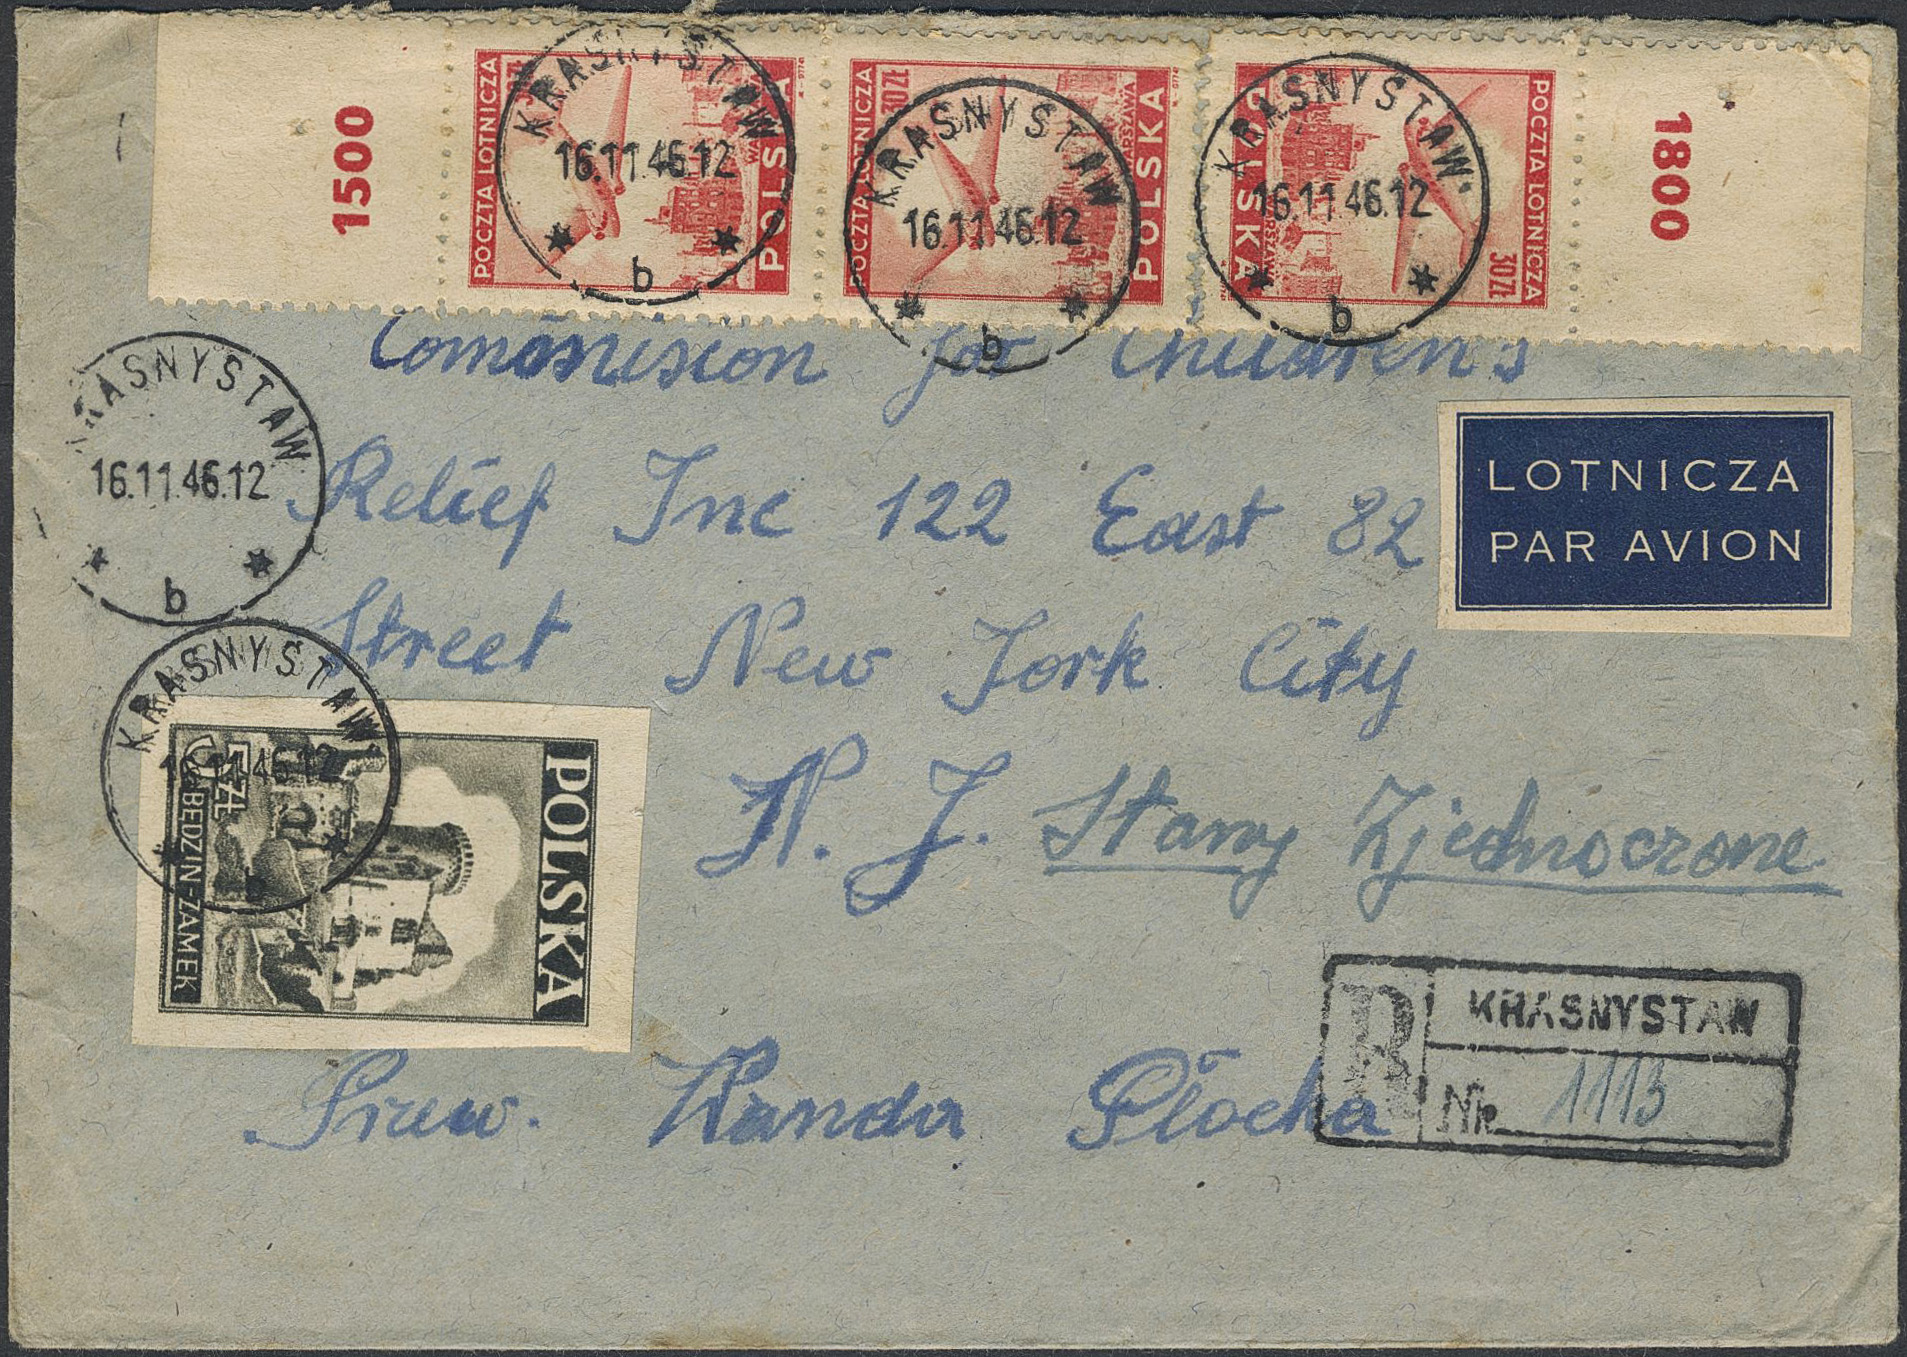 1500
POCZTA LOTNICZA
POLSKA
KRASNYSTAW
16.11.46.12
b
POCZTA LOTNICZA
30 ZŁ
WARSZAWA
POLSKA
KRASNYSTAW
16.11.46.12
b
POCZTA LOTNICZA
30 ZŁ
POLSKA
KRASNYSTAW
16.11.46.12
b
1800
Commision for Children's
LOTNICZA
PAR AVION
KRASNYSTAW
16.11.46.12
b
Relief Inc 122 East 82
Street New York City
N. J. Stany Zjednoczone
KRASNYSTAW
16.11.46.12
b
5 ZŁ
BĘDZIN-ZAMEK
POLSKA
R KRASNYSTAW
Nr. 1113
Wanda Płocha